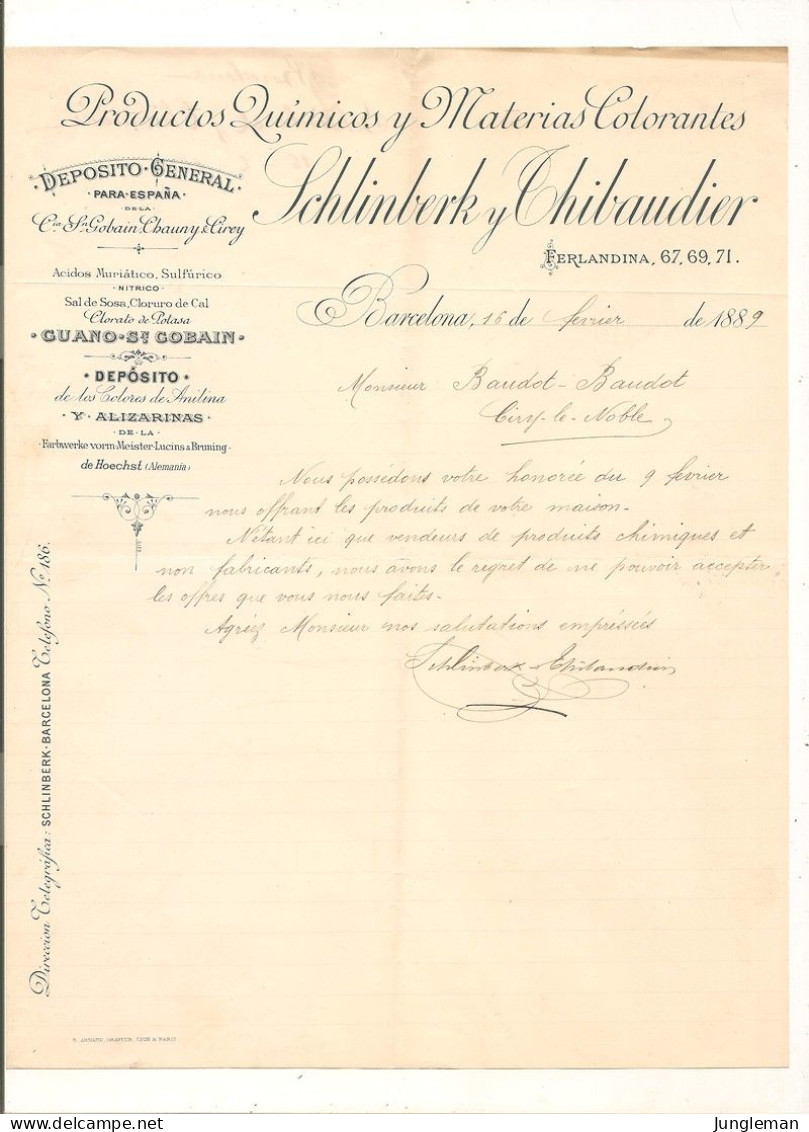 Productos Químicos y Materias Colorantes
Schlinberk y Thibaudier
FERLANDINA, 67, 69, 71.
DEPOSITO GENERAL
PARA ESPAÑA
DE LA
Cia St Gobain, Chauny & Cirey
Acidos Muriático, Sulfúrico
NITRICO
Sal de Sosa, Cloruro de Cal
Clorato de Potasa
GUANO St GOBAIN
DEPÓSITO
de los Colores de Anilina
Y ALIZARINAS
DE LA
Farbwerke vorm Meister Lucins & Bruning
de Hoechst (Alemania)
Direccion Telegráfica: SCHLINBERK-BARCELONA Telefono No 186.
Barcelona, 16 de fevrier de 1889
Monsieur Baudot-Baudot
Ciry-le-Noble
Nous possédons votre honorée du 9 fevrier
nous offrant les produits de votre maison.
N'étant ici que vendeurs de produits chimiques et
non fabricants, nous avons le regret de ne pouvoir accepter
les offres que vous nous faites.
Agréez Monsieur nos salutations empréssées
Schlinberk & Thibaudier
GRAVEUR, LYON & PARIS
Jungleman